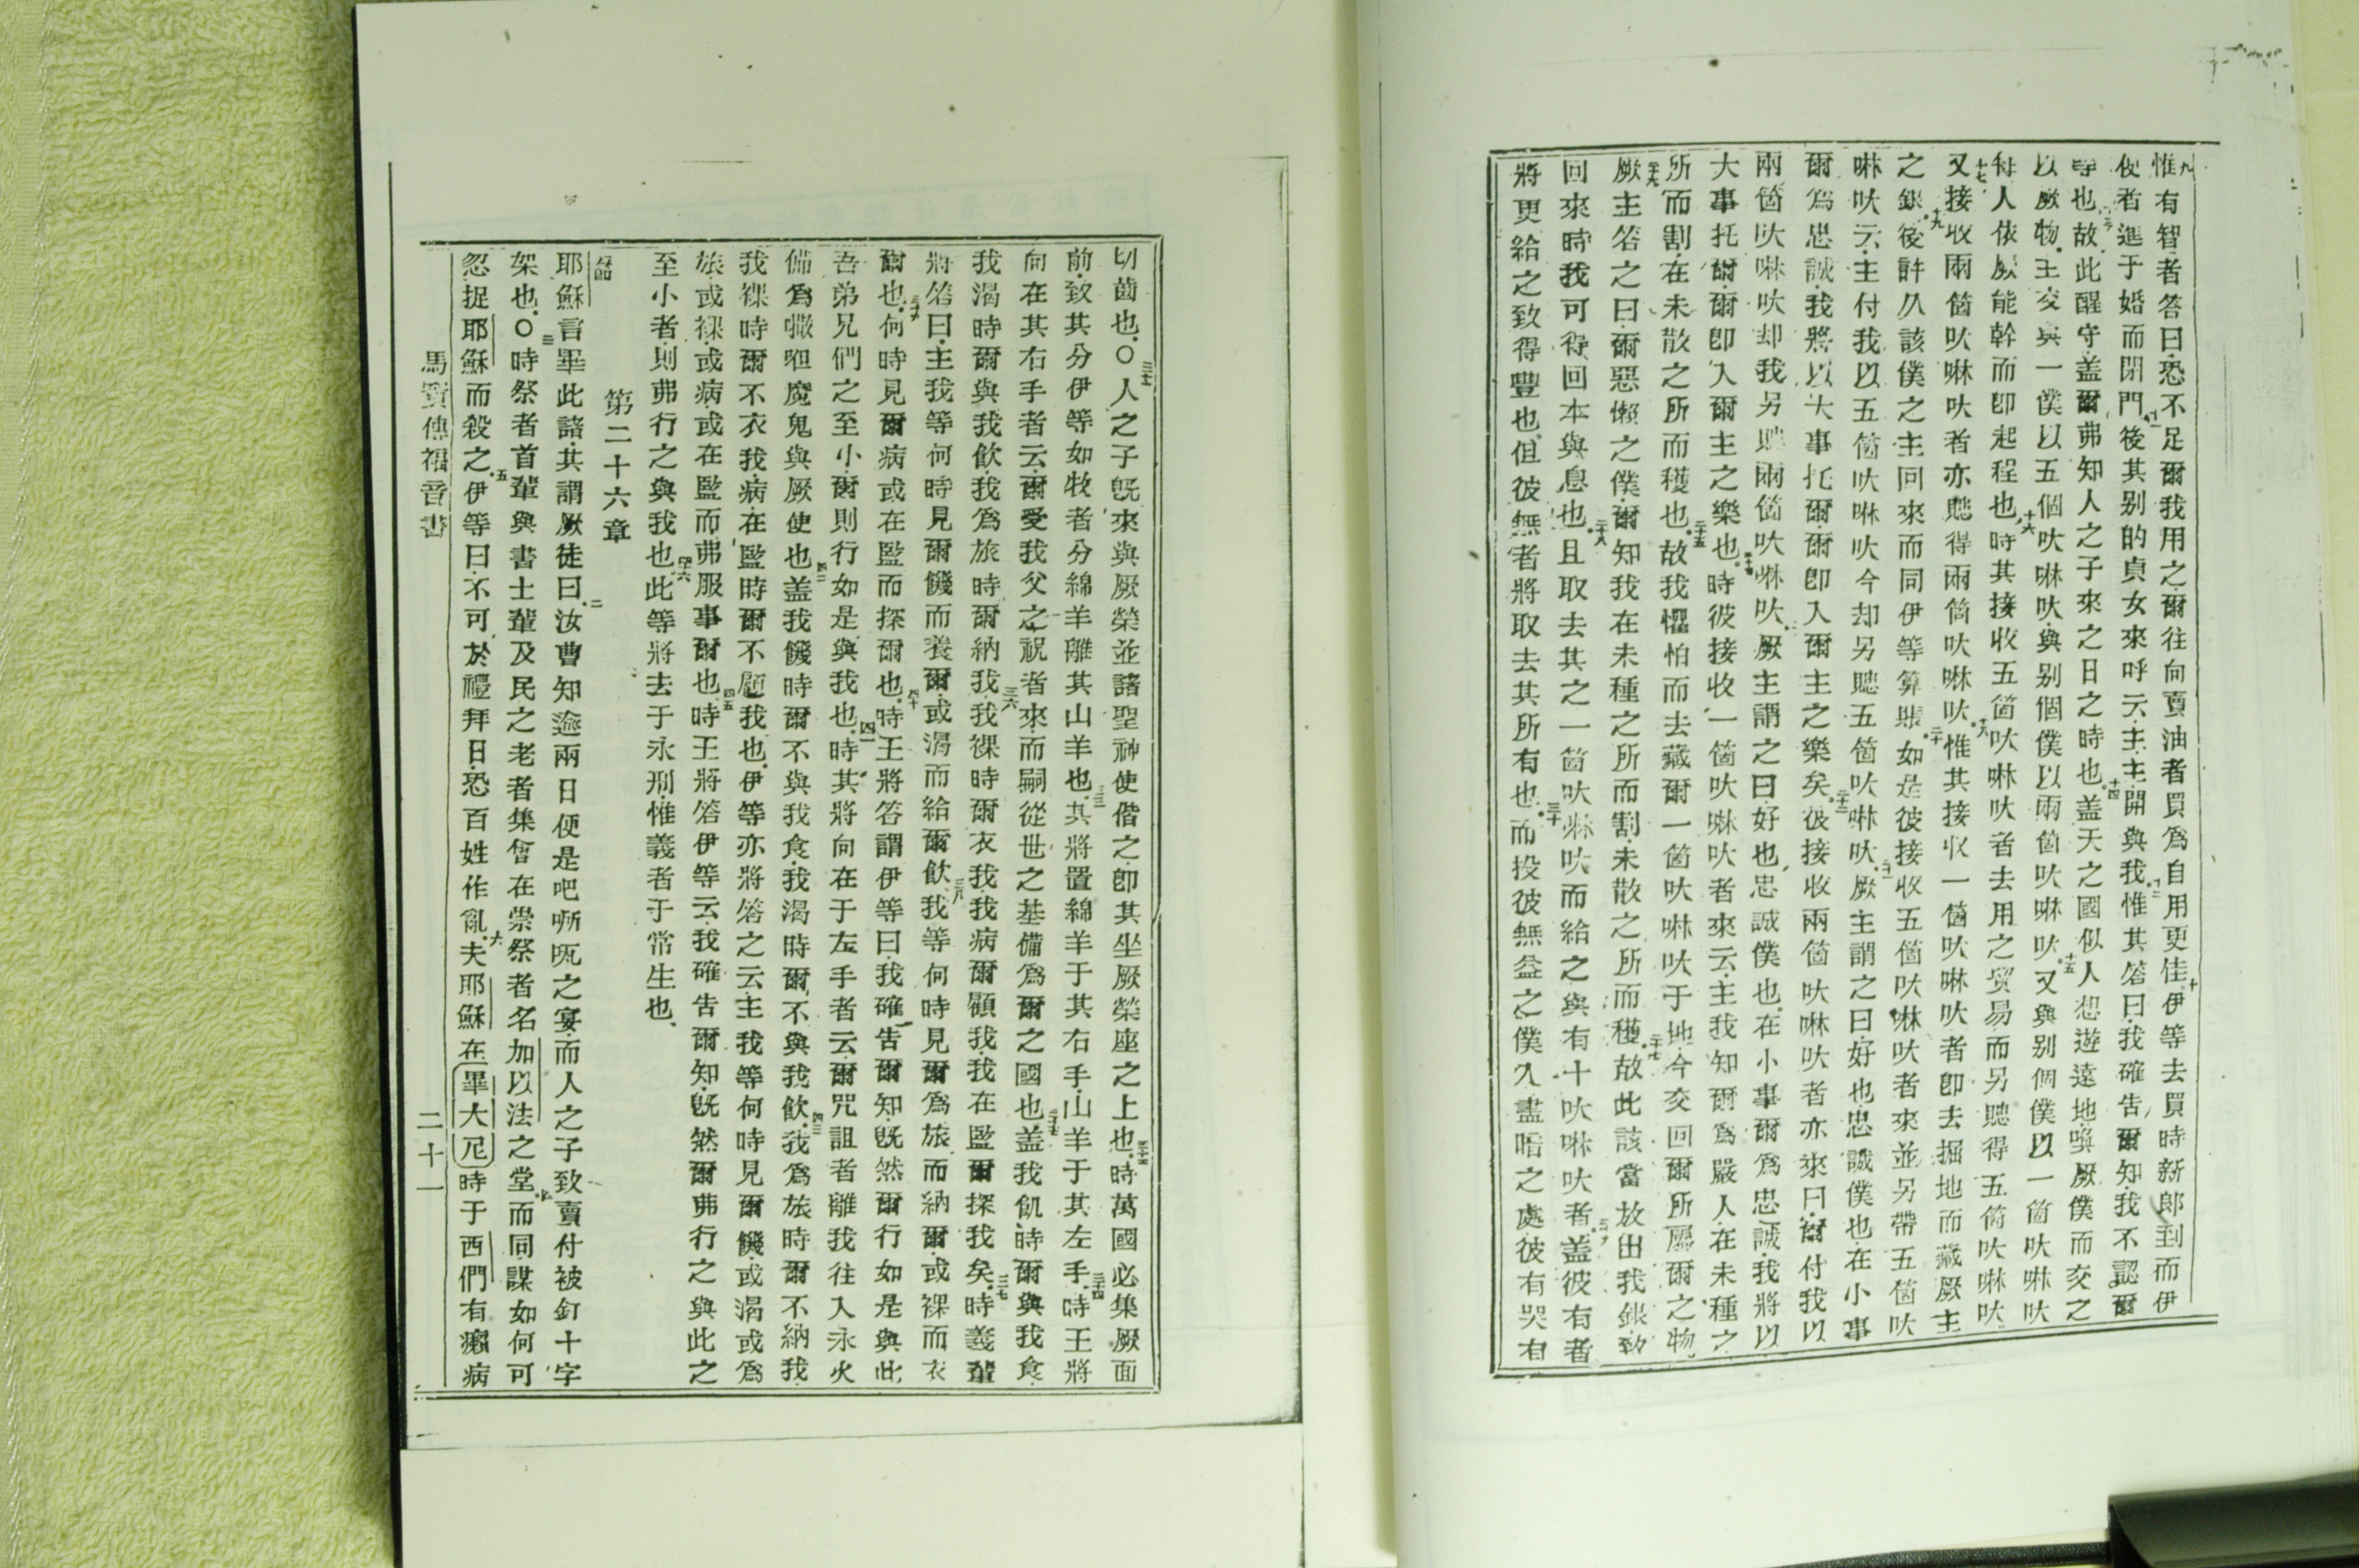 惟有智者答曰恐不足爾我用之爾往向賣油者買爲自用更佳十伊等去買時新郎到而伊
便者進于婚而閉門後其别的貞女來呼云主主開與我惟其答曰我確告爾知我不認爾
等也故此醒守盖爾弗知人之子來之日之時也十四盖天之國似人想遊遠地喚厥僕而交之
以厥物主交與一僕以五個吠啉吠與别個僕以兩箇吠啉吠十五又與别個僕以一箇吠啉吠
每人依厥能幹而卽起程也十六時其接收五箇吠啉吠者去用之貿易而另賺得五箇吠啉吠
十七又接收兩箇吠啉吠者亦賺得兩箇吠啉吠十八惟其接收一箇吠啉吠者卽去掘地而藏厥主
之銀十九後許久該僕之主回來而同伊等算賬二十如是彼接收五箇吠啉吠者來並另帶五箇吠
啉吠云主付我以五箇吠啉吠今却另賺五箇吠啉吠厥主謂之曰好也忠誠僕也在小事
爾爲忠誠我將以大事托爾爾卽入爾主之樂矣二十二彼接收兩箇吠啉吠者亦來曰爾付我以
兩箇吠啉吠却我另賺兩箇吠啉吠厥主謂之曰好也忠誠僕也在小事爾爲忠誠我將以
大事托爾爾卽入爾主之樂也二十四時彼接收一箇吠啉吠者來云主我知爾爲嚴人在未種之
所而割在未散之所而穫也二十五故我懼怕而去藏爾一箇吠啉吠于地今交回爾所屬爾之物
二十六厥主答之曰爾惡懶之僕爾知我在未種之所而割未散之所而穫二十七故此該當放出我銀致
回來時我可得回本與息也二十八且取去其之一箇吠啉吠而給之與有十吠啉吠者盖彼有者
將更給之致得豐也但彼無者將取去其所有也三十而投彼無益之僕入盡暗之處彼有哭有
切齒也〇人之子旣來與厥榮並諸聖神使偕之卽其坐厥榮座之上也三十二時萬國必集厥面
前致其分伊等如牧者分綿羊離其山羊也三十三其將置綿羊于其右手山羊于其左手三十四時王將
向在其右手者云爾受我父之祝者來而嗣從世之基備爲爾之國也三十五盖我飢時爾與我食
我渴時爾與我飮我爲旅時爾納我三六我裸時爾衣我我病爾顧我我在監爾探我矣三七時義輩
將答曰主我等何時見爾饑而養爾或渴而給爾飮三八我等何時見爾爲旅而納爾或裸而衣
爾也三十九何時見爾病或在監而探爾也四十時王將答謂伊等曰我確告爾知旣然爾行如是與此
吾弟兄們之至小爾則行如是與我也四一時其將向在于左手者云爾咒詛者離我往入永火
備爲㘔呾魔鬼與厥使也四二盖我饑時爾不與我食我渴時爾不與我飮四三我爲旅時爾不納我
我裸時爾不衣我病在監時爾不顧我也伊等亦將答之云主我等何時見爾饑或渴或爲
旅或裸或病或在監而弗服事爾也四五時王將答伊等云我確告爾知旣然爾弗行之與此之
至小者則弗行之與我也四十六此等將去于永刑惟義者于常生也
第二十六章
耶穌言畢此諸其謂厥徒曰二汝曹知逾兩日便是吧㖔㕸之宴而人之子致賣付被釘十字
架也〇三時祭者首輩與書士輩及民之老者集會在祟祭者名加以法之堂四而同謀如何可
忽捉耶穌而殺之五伊等曰不可於禮拜日恐百姓作亂六夫耶穌在畢大尼時于西們有癩病
馬竇傳福音書
二十一